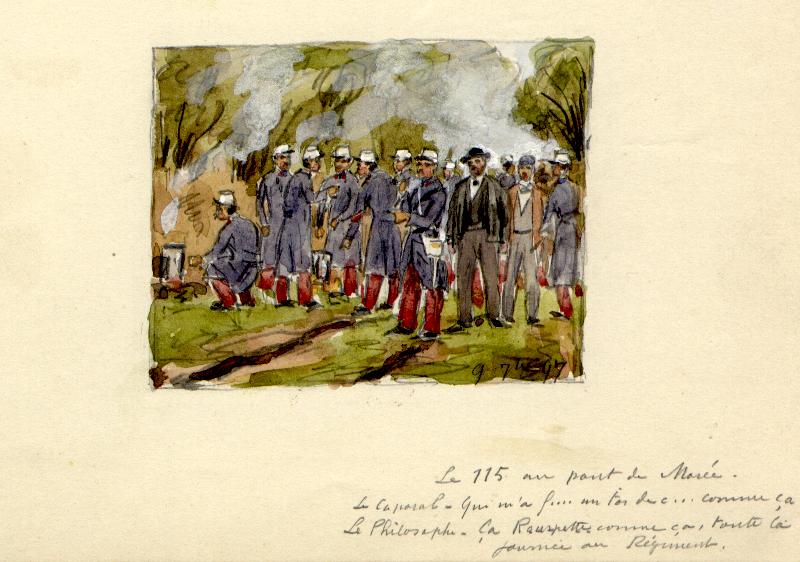 9 7bre 97
Le 115 au pont de Morée.
Le Caporal - Qui m'a f.... un tas de c... comme ça
Le Philosophe - Ça comme ça, toute la
journée au Régiment.